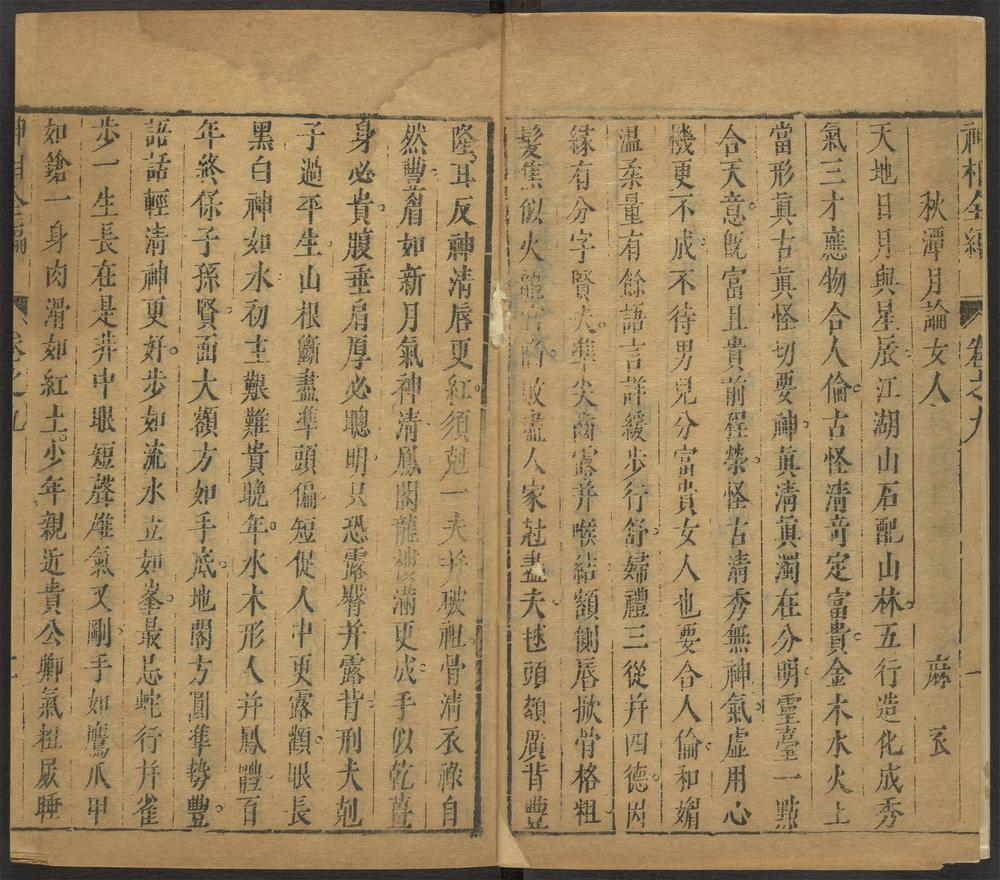 神相全編 卷之九 一
秋潭月論女人 麻衣
天地日月與星辰江湖山石配山林五行造化成秀
氣三才應物合人倫古怪清竒定富貴金木水火上
當形真古真怪切要神真清真濁在分明靈臺一點
合天意旣富且貴前程榮怪古清秀無神氣虛用心
機更不成不待男兒分富貴女人也要合人倫和媚
温柔量有餘語言詳緩步行舒婦禮三從并四德因
緣有分字賢夫準尖齒露并喉結額側唇掀骨格粗
髮焦似火敗盡人家尅盡夫毬頭額廣背豐
隆耳反神清唇更紅須尅一夫并破祖骨清衣祿自
然豐眉如新月氣神清鳳閣龍樓滿更成手似乾薑
身必貴腹垂肩厚必聰明只恐露臀并露背刑夫尅
子過平生山根斷盡準頭偏短促人中更露顴眼長
黑白神如水初主艱難貴晚年水木形人并鳳體百
年終保子孫賢面大額方如手底地閣方圓準勢豐
語話輕清神更好步如流水立如峯最忌蛇行并雀
步一生長在是非中眼短聲雄氣又剛手如鷹爪甲
如鎗一身肉滑如紅土少年親近貴公卿氣粗屍睡
神相全編 卷之九 一